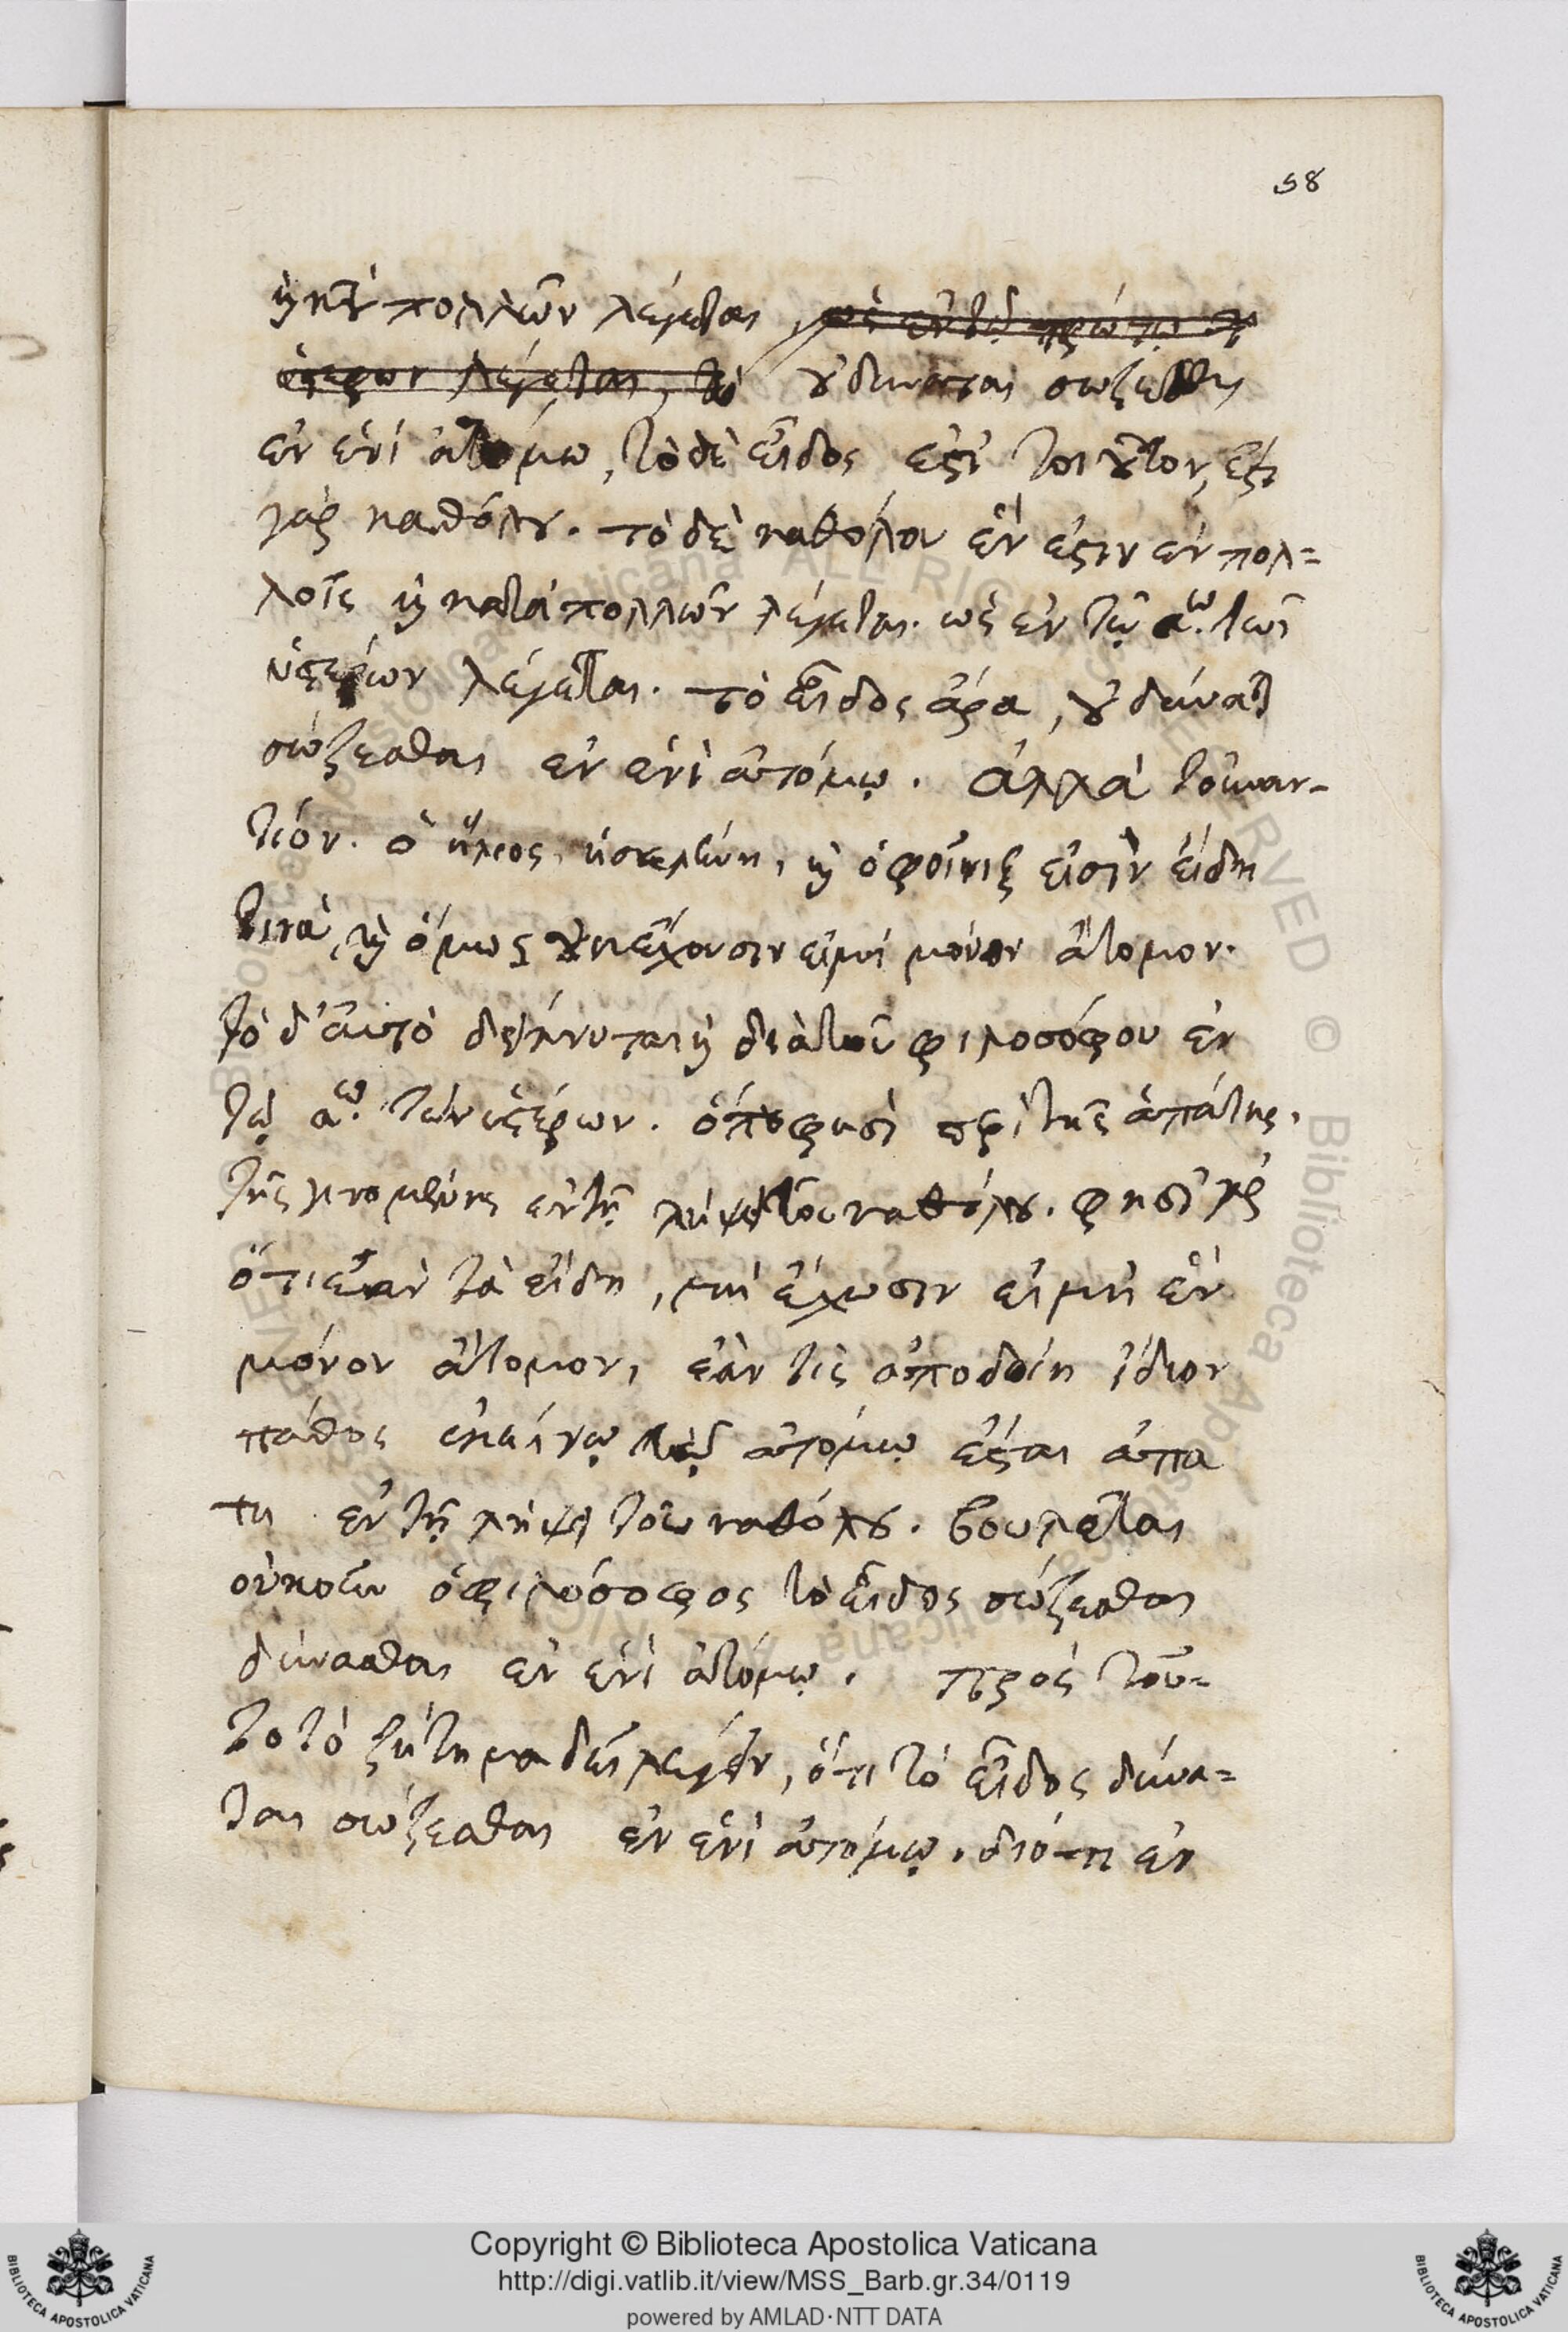 58
καὶ κατὰ πολλῶν λέγεται, ὡς ἐν τῷ πρώτῳ τ
ὑστέρων λέγεται, τὸ οὐ δύναται σώζεσθαι
ἐν ἑνὶ ἀτόμω, τὸ δὲ εἶδος ἐστὶ τοιοῦτον, ἐστὶ
γὰρ καθόλου. τὸ δὲ καθόλου ἕν ἐστιν ἐν πολ=
λοῖς καὶ κατὰ πολλῶν λέγεται. ὡς ἐν τῷ α.ῳ τῶν
ὑστέρων λέγεται. τὸ εἶδος ἄρα, οὐ δύναται
σώζεσθαι ἐν ἑνὶ ἀτόμῳ. ἀλλὰ τοὐναν-
τίον. ὁ ἥλιος, ἡ σελήνη, καὶ ὁ φοίνιξ εἰσὶν εἴδη
τινὰ, καὶ ὅμως οὐκ ἔχουσιν εἰμὴ μόνον ἄτομον.
τὸ δ' αὐτὸ δείκνυται καὶ διὰ τοῦ φιλοσόφου ἐν
τῷ α.ῳ τῶν ὑστέρων. ὅπου φησὶ περὶ τῆς ἀπάτης,
τῆς γινομένης ἐν τῇ λήψει τοῦ καθόλου. φησὶ γὰρ
ὅτι ἐὰν τὰ εἴδη, μὴ ἔχωσιν εἰμὴ ἓν
μόνον ἄτομον, ἐὰν τὶς ἀποδοίη ἴδιον
πάθος ἐκείνῳ τῷ ἀτόμῳ ἔσται ἀπα
τη ἐν τῇ λήψει τοῦ καθόλου. βούλεται
οὐκοῦν ὁ φιλόσοφος τὸ εἶδος σώζεσθαι
δύνασθαι ἐν ἑνὶ ἀτόμῳ. πρὸς τοῦ=
το τὸ ζήτημα δεῖ λέγειν, ὅτι τὸ εἶδος δύνα=
ται σώζεσθαι ἐν ἑνὶ ἀτόμῳ. διότι ἐν
Copyright © Biblioteca Apostolica Vaticana
http://digi.vatlib.it/view/MSS_Barb.gr.34/0119
powered by AMLAD·NTT DATA
BIBLIOTECA APOSTOLICA VATICANA
BIBLIOTECA APOSTOLICA VATICANA